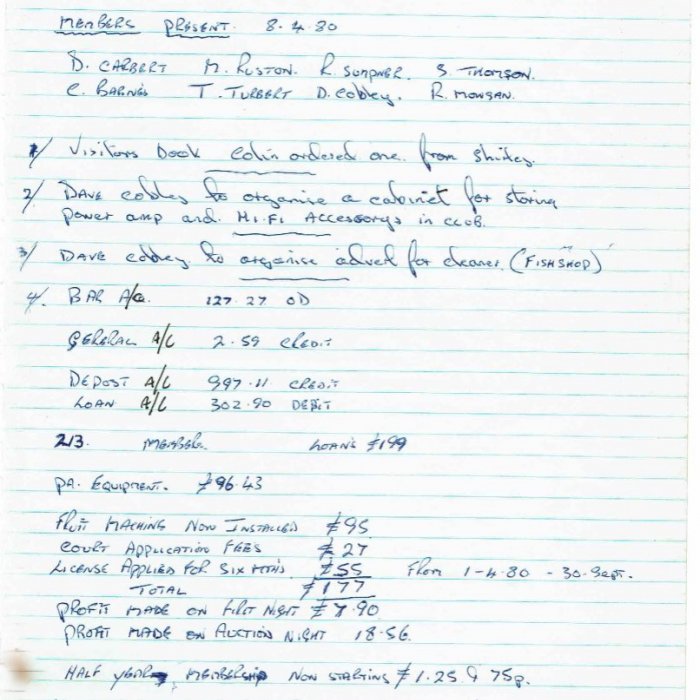 MEMBERS PRESENT. 8.4.80
D. CARBERT M. RUSTON. R. SUMPNER. S. THOMSON.
C. BARNES T. TURBERT D. Cobley. R. MOWSAN.
1/ Visitors book Colin ordered one. from Shirley.
2/ DAVE cobley to organise a cabinet for storing
power amp and. HI.FI Accessorys in club.
3/ DAVE cobley to organise advert for cleaner. (FISHSHOP)
4/. BAR A/C. 127.27 OD
GENERAL A/C 2.59 CREDIT
DEPOST A/C 997.11 CREDIT
LOAN A/C 302.90 DEBIT
213. MEMBERS. LOANS £199
PA. EQUIPMENT. £96.43
FRUIT MACHINE NOW INSTALLED £95
COURT APPLICATION FEES £27
LICENSE APPLIED FOR SIX MTHS £55 FROM 1-4-80 - 30-Sept.
TOTAL £177
PROFIT MADE ON FIRST NIGHT £7.90
PROFIT MADE ON AUCTION NIGHT 18.56
HALF YEAR MEMBERSHIP NOW STARTING £1.25 & 75p.